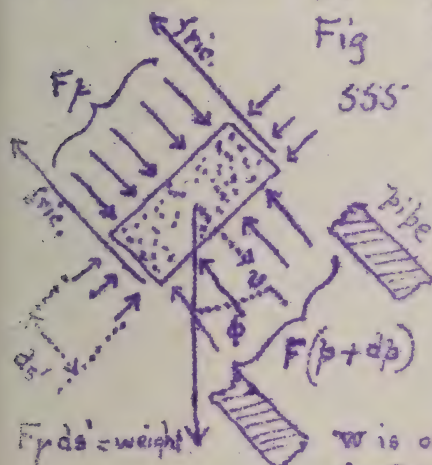 Fig
555
fric.
Fp
fric.
pipe
ds'
v
φ
F(p+dp)
Fγds'=weight
w is o